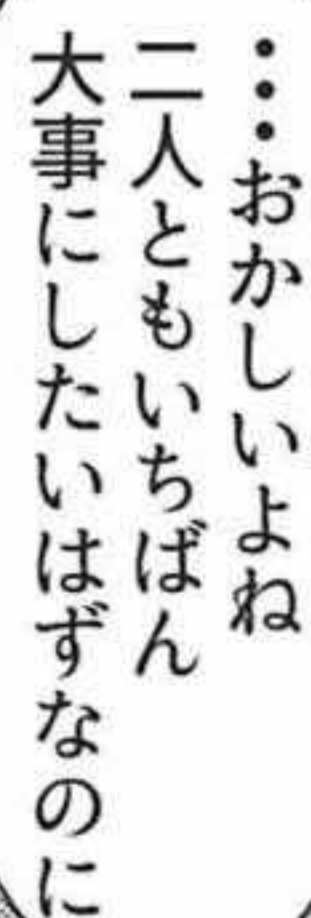 …おかしいよね
二人ともいちばん
大事にしたいはずなのに